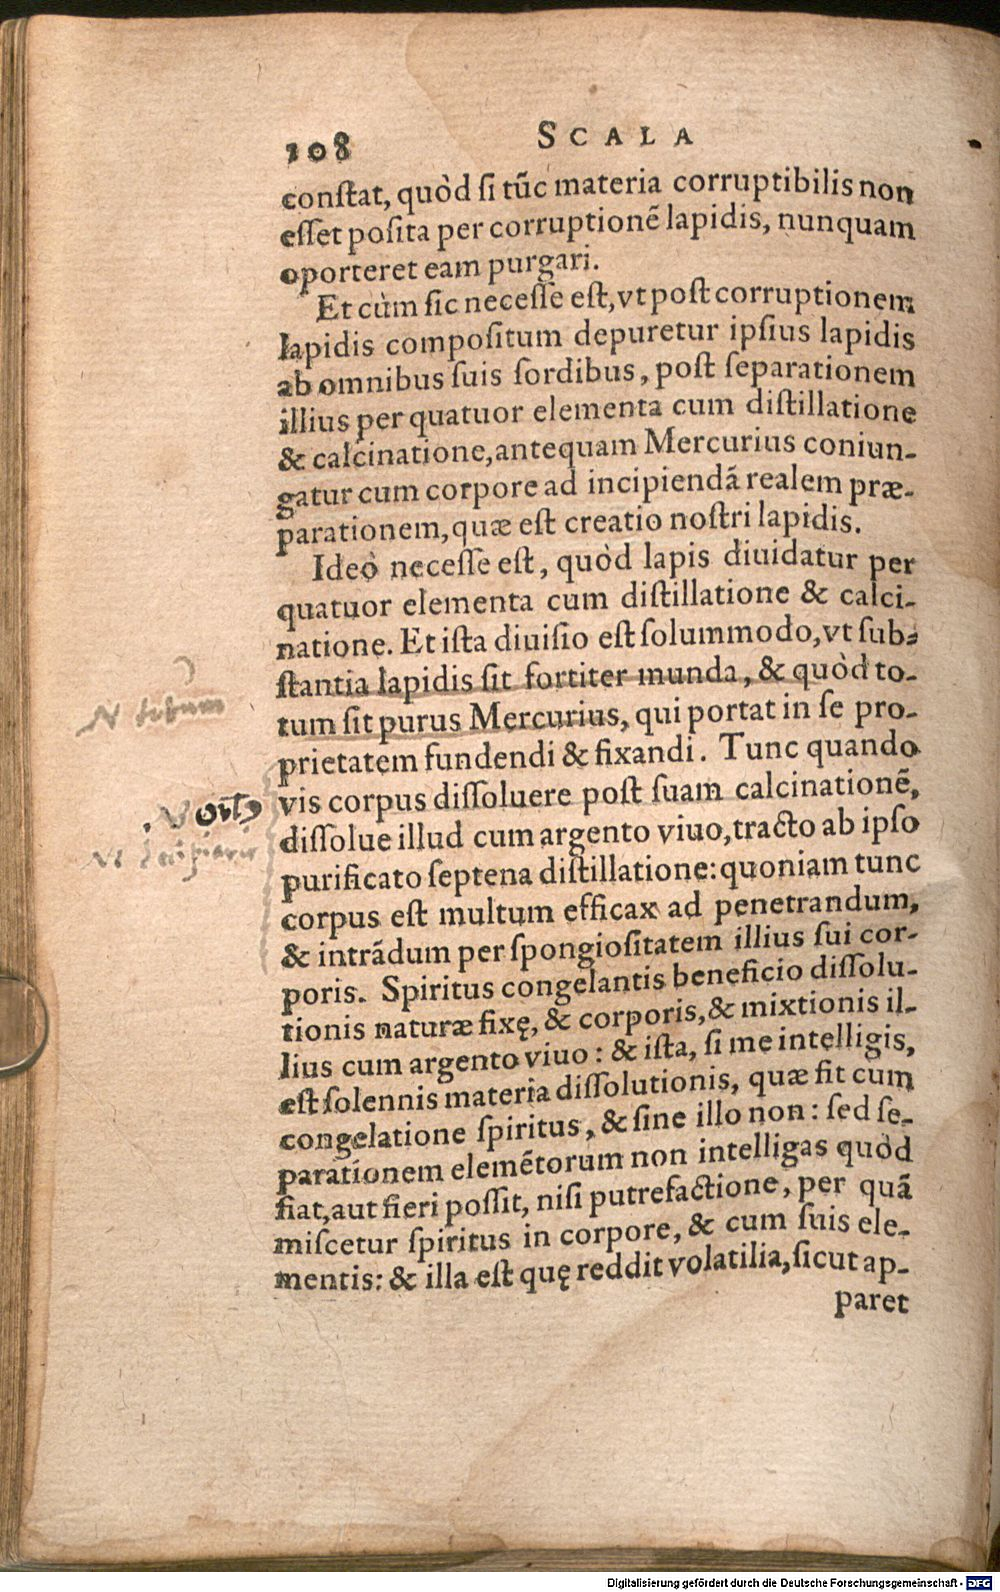 108
SCALA
conſtat, quòd ſi tũc materia corruptibilis non
eſſet poſita per corruptionẽ lapidis, nunquam
oporteret eam purgari.
Et cùm ſic neceſſe eſt, vt poſt corruptionem
lapidis compoſitum depuretur ipſius lapidis
ab omnibus ſuis ſordibus, poſt ſeparationem
illius per quatuor elementa cum diſtillatione
& calcinatione, antequam Mercurius coniun-
gatur cum corpore ad incipiendã realem præ-
parationem, quæ eſt creatio noſtri lapidis.
Ideò neceſſe eſt, quòd lapis diuidatur per
quatuor elementa cum diſtillatione & calci-
natione. Et iſta diuiſio eſt ſolummodo, vt ſub-
ſtantia lapidis ſit fortiter munda, & quòd to-
tum ſit purus Mercurius, qui portat in ſe pro-
prietatem fundendi & fixandi. Tunc quando
vis corpus diſſoluere poſt ſuam calcinationẽ,
diſſolue illud cum argento viuo, tracto ab ipſo
purificato ſeptena diſtillatione: quoniam tunc
corpus eſt multum efficax ad penetrandum,
& intrãdum per ſpongioſitatem illius ſui cor-
poris. Spiritus congelantis beneficio diſſolu-
tionis naturæ fixę, & corporis, & mixtionis il-
lius cum argento viuo: & iſta, ſi me intelligis,
eſt ſolennis materia diſſolutionis, quæ fit cum
congelatione ſpiritus, & ſine illo non: ſed ſe-
parationem elemẽtorum non intelligas quòd
fiat, aut fieri poſſit, niſi putrefactione, per quã
miſcetur ſpiritus in corpore, & cum ſuis ele-
mentis: & illa eſt quę reddit volatilia, ſicut ap-
paret
Digitalisierung gefördert durch die Deutsche Forschungsgemeinschaft - DFG